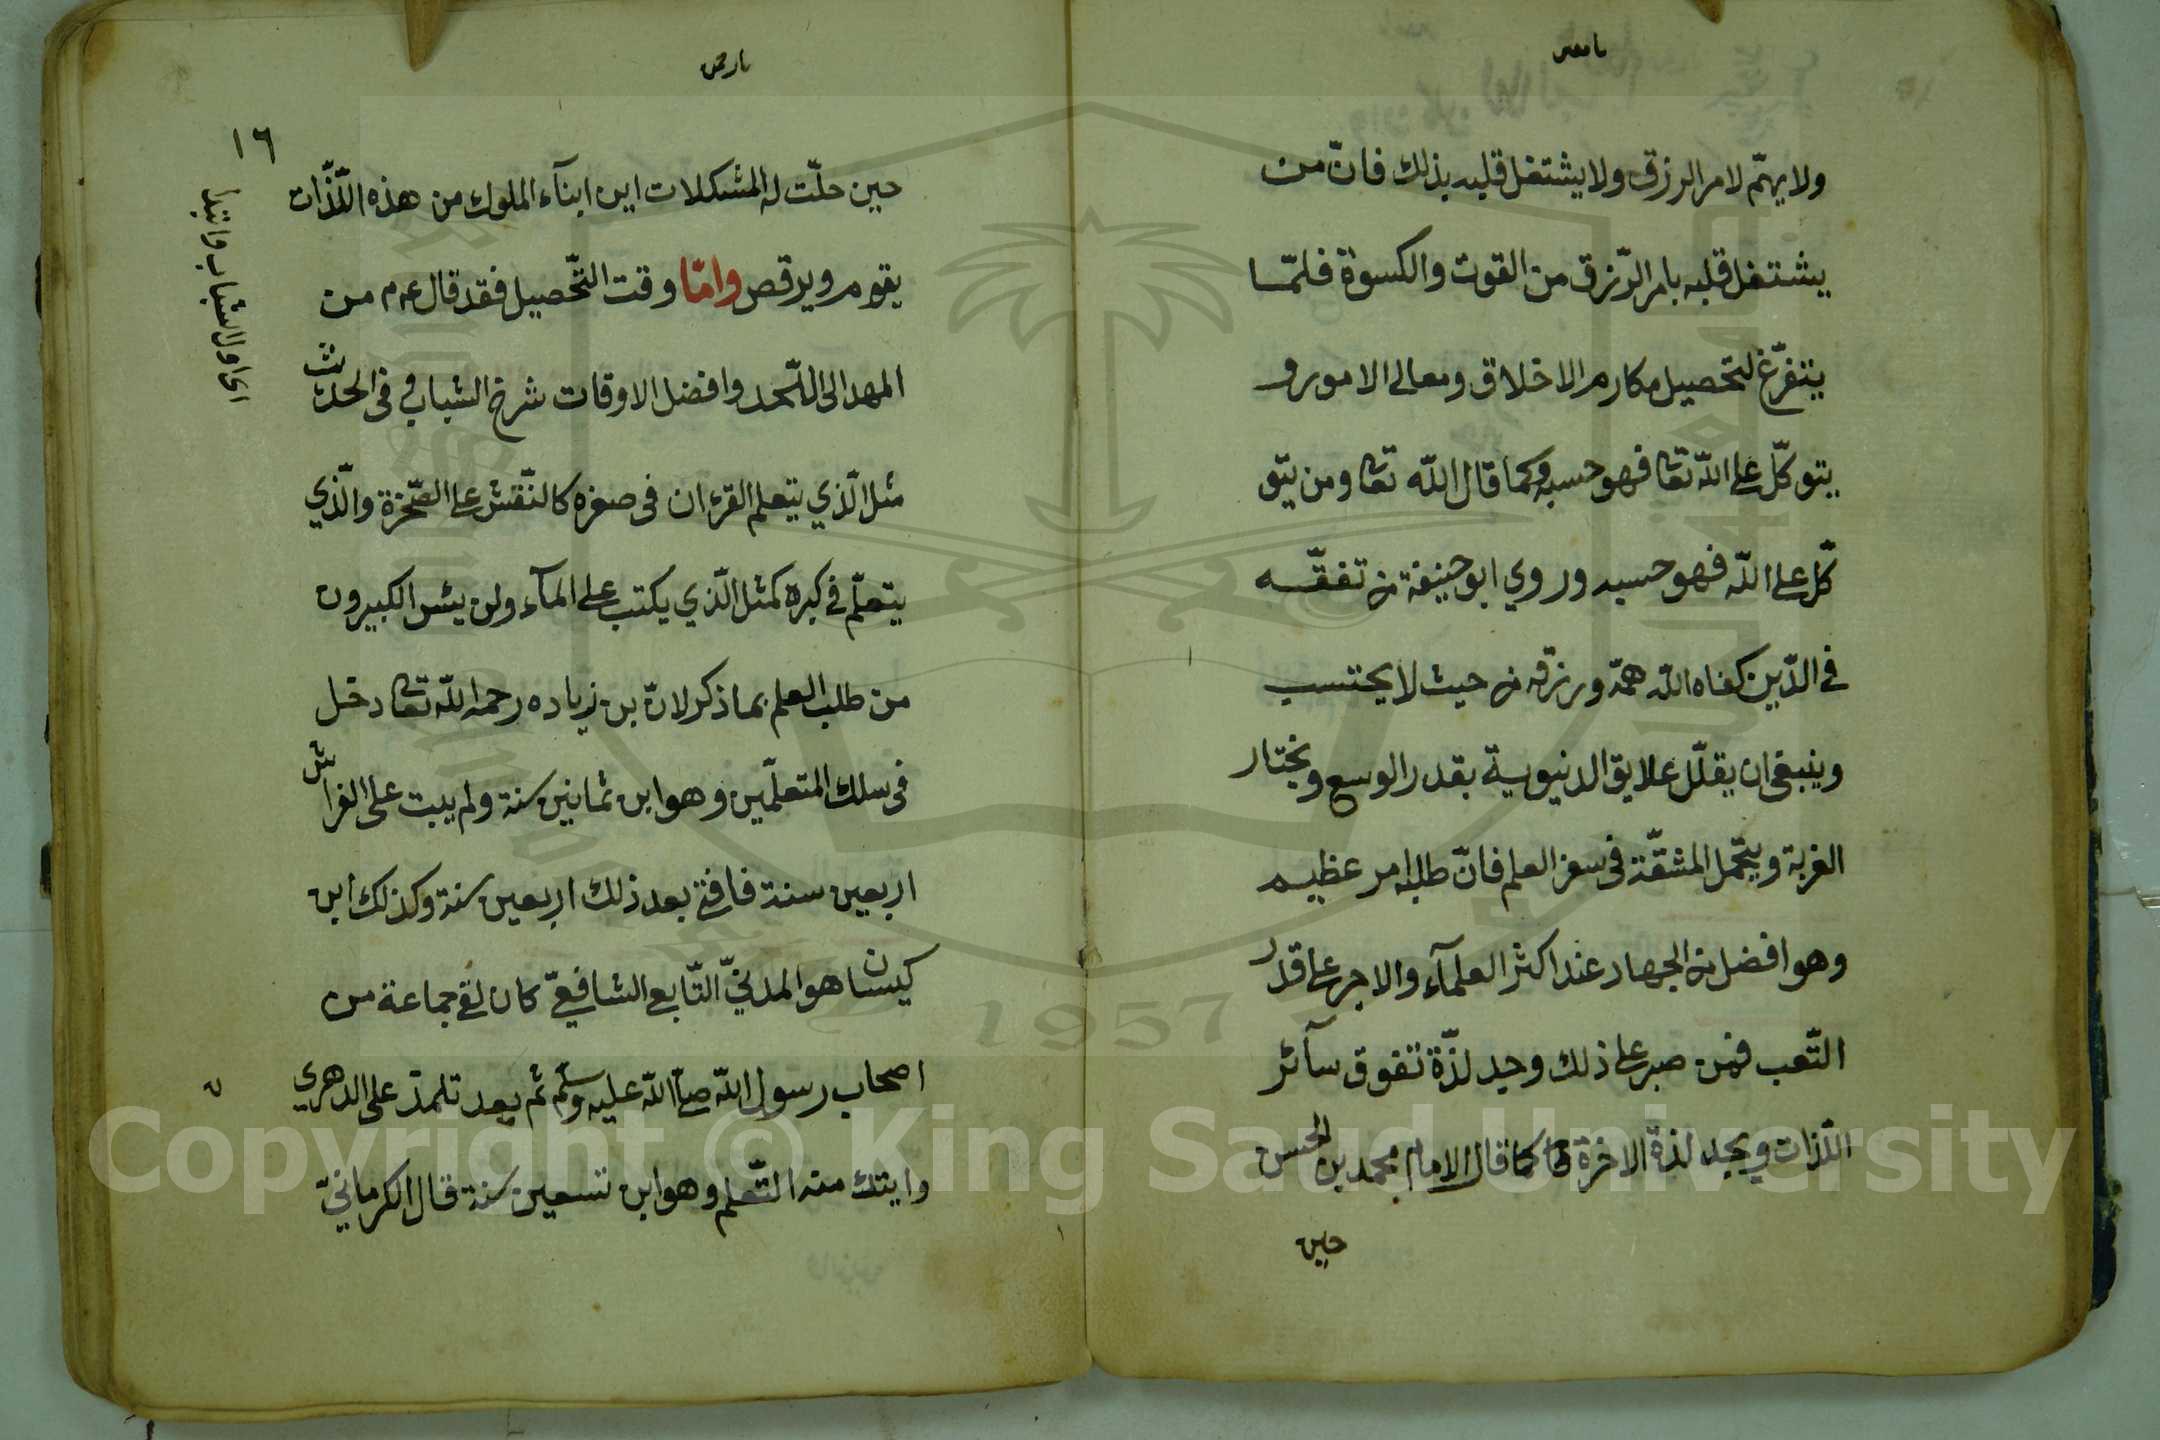 ولا يهتم لامر الرزق ولا يشتغل قلبه بذلك فانّ من
يشتغل قلبه بامر الرّزق من القوت والكسوة فلمّا
يتفرّغ لتحصيل مكارم الاخلاق ومعالى الامور و
يتوكّل على اللّه تعا فهو حسبه وكما قال اللّه تعا ومن يتو
كّل على اللّه فهو حسبه وروي ابو حنيفة من تفقّه
في الدّين كفاه اللّه همّه ورزقه من حيث لا يحتسب
وينبغى ان يقلّل علايق الدنيوية بقدر الوسع ويختار
الغربة ويتحمل المشقّة فى سفر العلم فانّ طلبه امر عظيم
وهو افضل من الجهاد عند اكثر العلمآء والاجر على قدر
التّعب فمن صبر على ذلك وجد لذّة تفوق سآئر
اللّذات ويجد لذة الاخرة كما قال الامام محمد بن الحسن
حين
١٦
حين حلّت له المشكلات اين ابنآء الملوك من هذه اللّذّات
يقوم ويرقص وامّا وقت التّحصيل فقد قال عم من
المهد الى اللّحد وافضل الاوقات شرخ الشباب و فى الحديث
اى اول الشباب وابتدا
مثل الّذي يتعلم القرءان فى صغره كالنّقش على الصّخرة والّذي
يتعلّم في كبره كمثل الّذي يكتب على المآء ولن يئس الكبيرون
من طلب العلم بما ذكر لانّ بن زياده رحمه اللّه تعا دخل
فى سلك المتعلّمين وهو ابن ثمانين سنة ولم يبت على الفراش
اربعين سنة فافتى بعد ذلك اربعين سنة وكذلك ابن
كيسان هو المدنيّ التّابع الشافعيّ كان لقى جماعة من
اصحاب رسول اللّه صلّى اللّه عليه وسلّم ثم بعد تلمذ على الدهري
وابتك منه التّعلم وهو ابن تسعين سنة قال الكرمانيّ
1957
Copyright © King Saud University